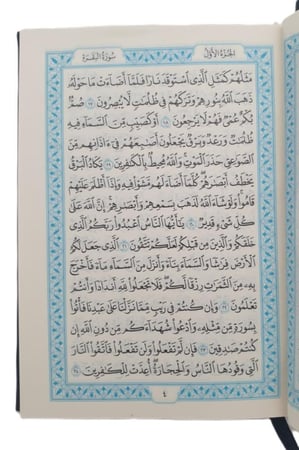 الجزء الأول سورة البقرة
مَثَلُهُمْ كَمَثَلِ ٱلَّذِى ٱسْتَوْقَدَ نَارًا فَلَمَّآ أَضَآءَتْ مَا حَوْلَهُۥ
ذَهَبَ ٱللَّهُ بِنُورِهِمْ وَتَرَكَهُمْ فِى ظُلُمَٰتٍ لَّا يُبْصِرُونَ ١٧ صُمٌّۢ
بُكْمٌ عُمْىٌ فَهُمْ لَا يَرْجِعُونَ ١٨ أَوْ كَصَيِّبٍ مِّنَ ٱلسَّمَآءِ فِيهِ
ظُلُمَٰتٌ وَرَعْدٌ وَبَرْقٌ يَجْعَلُونَ أَصَٰبِعَهُمْ فِىٓ ءَاذَانِهِم مِّنَ
ٱلصَّوَٰعِقِ حَذَرَ ٱلْمَوْتِ وَٱللَّهُ مُحِيطٌۢ بِٱلْكَٰفِرِينَ ١٩ يَكَادُ ٱلْبَرْقُ
يَخْطَفُ أَبْصَٰرَهُمْ كُلَّمَآ أَضَآءَ لَهُم مَّشَوْا۟ فِيهِ وَإِذَآ أَظْلَمَ عَلَيْهِمْ
قَامُوا۟ وَلَوْ شَآءَ ٱللَّهُ لَذَهَبَ بِسَمْعِهِمْ وَأَبْصَٰرِهِمْ إِنَّ ٱللَّهَ عَلَىٰ
كُلِّ شَىْءٍ قَدِيرٌ ٢٠ يَٰٓأَيُّهَا ٱلنَّاسُ ٱعْبُدُوا۟ رَبَّكُمُ ٱلَّذِى
خَلَقَكُمْ وَٱلَّذِينَ مِن قَبْلِكُمْ لَعَلَّكُمْ تَتَّقُونَ ٢١ ٱلَّذِى جَعَلَ لَكُمُ
ٱلْأَرْضَ فِرَٰشًا وَٱلسَّمَآءَ بِنَآءً وَأَنزَلَ مِنَ ٱلسَّمَآءِ مَآءً فَأَخْرَجَ
بِهِۦ مِنَ ٱلثَّمَرَٰتِ رِزْقًا لَّكُمْ فَلَا تَجْعَلُوا۟ لِلَّهِ أَندَادًا وَأَنتُمْ
تَعْلَمُونَ ٢٢ وَإِن كُنتُمْ فِى رَيْبٍ مِّمَّا نَزَّلْنَا عَلَىٰ عَبْدِنَا فَأْتُوا۟
بِسُورَةٍ مِّن مِّثْلِهِۦ وَٱدْعُوا۟ شُهَدَآءَكُم مِّن دُونِ ٱللَّهِ إِن
كُنتُمْ صَٰدِقِينَ ٢٣ فَإِن لَّمْ تَفْعَلُوا۟ وَلَن تَفْعَلُوا۟ فَٱتَّقُوا۟ ٱلنَّارَ
ٱلَّتِى وَقُودُهَا ٱلنَّاسُ وَٱلْحِجَارَةُ أُعِدَّتْ لِلْكَٰفِرِينَ ٢٤
٤